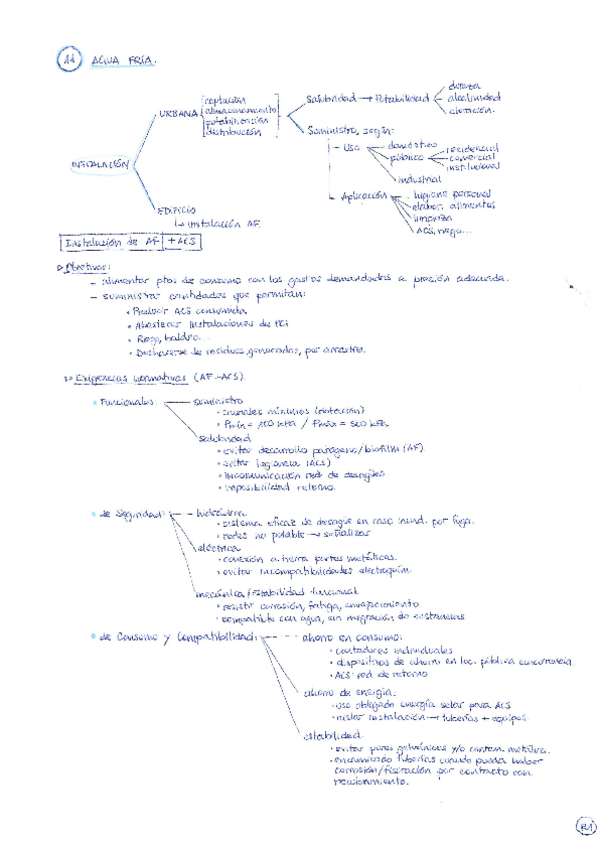 11 AGUA FRÍA.
INSTALACIÓN
URBANA
captación
almacenamiento
potabilización
distribución
Salubridad → Potabilidad
dureza
alcalinidad
cloración.
Suministro, según:
- Uso
doméstico
público
residencial
comercial
institucional
industrial
- Aplicación
higiene personal
elabor. alimentos
limpieza
ACS, riego...
EDIFICIO
↳ instalación AF
Instalación de AF + ACS
Objetivos:
- alimentar ptos de consumo con los gastos demandados a presión adecuada.
- suministrar cantidades que permitan:
• Producir ACS consumida
• Abastecer instalaciones de PCI
• Riego, baldeo...
• Deshacerse de residuos generados, por arrastre.
Exigencias normativas (AF-ACS)
• Funcionales:
suministro
• caudales mínimos (dotación)
• Pmín = 100 kPa / Pmáx = 500 kPa
salubridad
• evitar desarrollo patógeno/biofilm (AF)
• evitar legionela (ACS)
• incomunicación red de desagües.
• imposibilidad retorno.
• de Seguridad:
hidráulica
• sistema eficaz de desagüe en caso inund. por fuga.
• redes no potable → señalizar
eléctrica
• conexión a tierra partes metálicas.
• evitar incompatibilidades electroquím.
mecánica/estabilidad funcional
• resistir corrosión, fatiga, envejecimiento
• compatible con agua, sin migración de sustancias
• de Consumo y Compatibilidad:
ahorro en consumo:
• contadores individuales
• dispositivos de ahorro en loc. pública concurrencia.
• ACS: red de retorno
ahorro de energía.
• uso obligado energía solar para ACS
• aislar instalación → tuberías + equipos.
estabilidad.
• evitar pares galvánicos y/o contam. metálica.
• encamisado tuberías cuando pueda haber
corrosión/fisuración por contacto con
revestimiento.